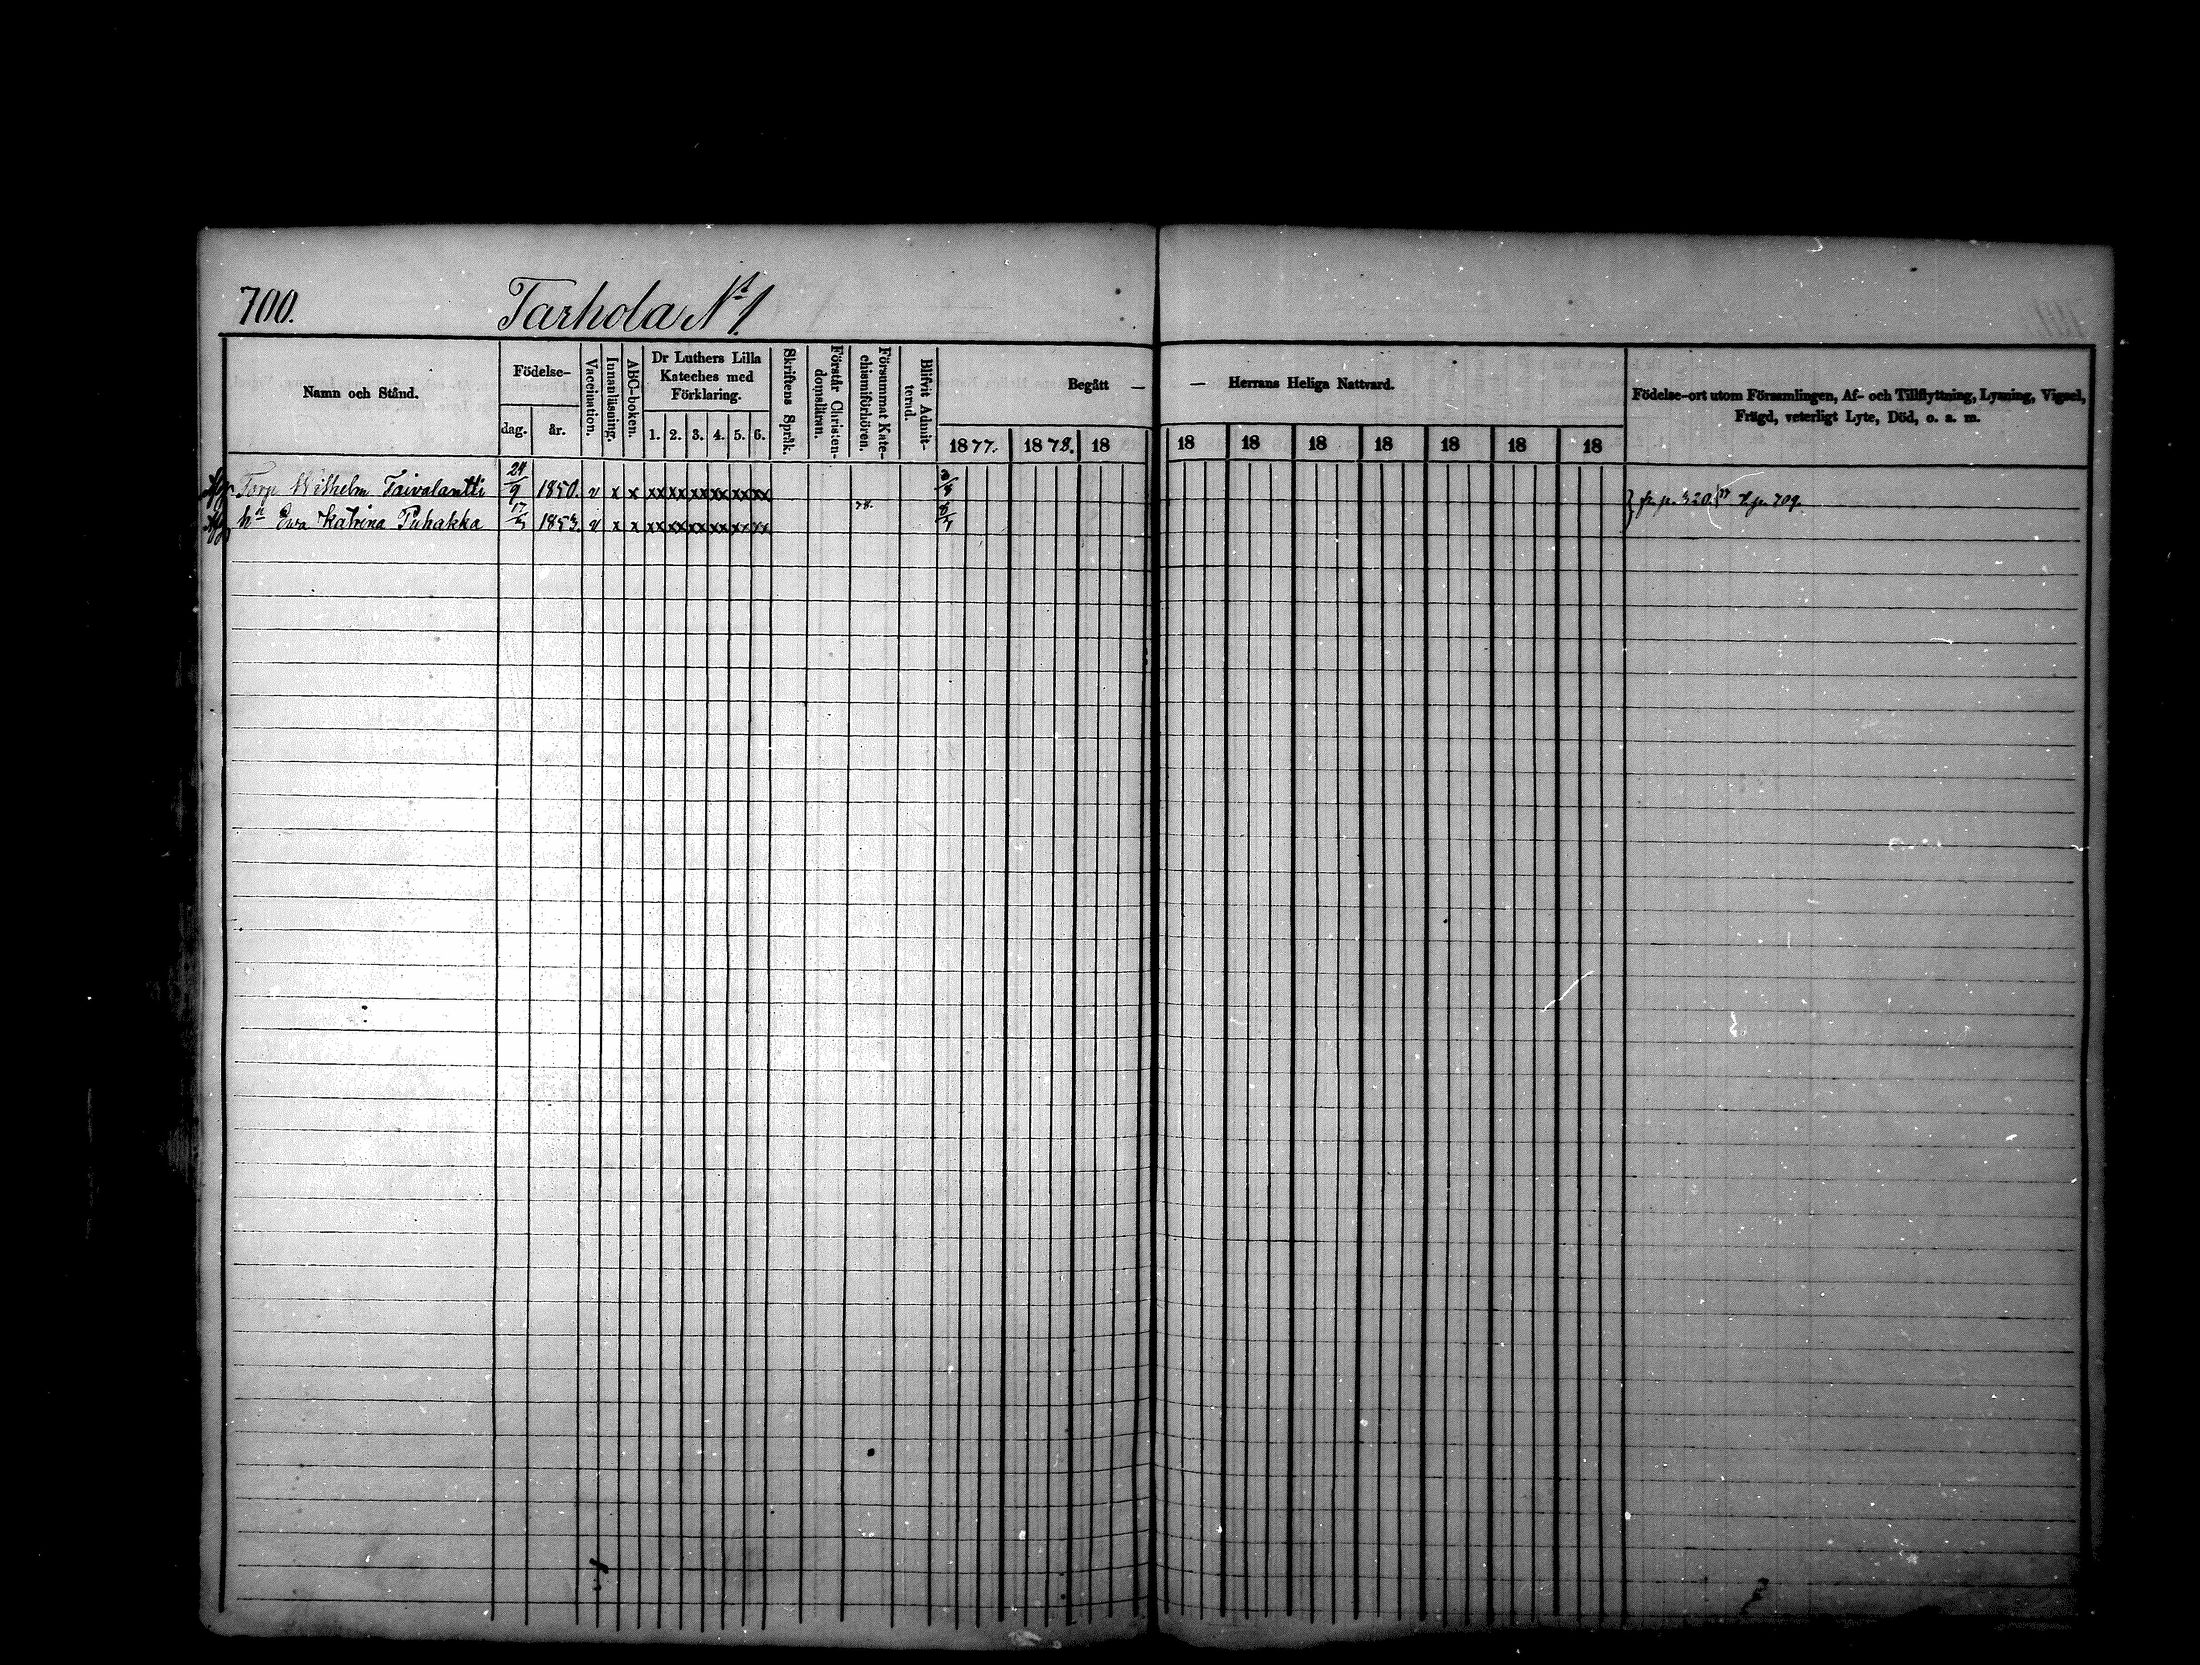 700. Tarhola N° 1
Namn och Stånd.
Födelse-
dag. år.
Vaccination.
Innanläsning.
ABC-boken.
Dr Luthers Lilla
Kateches med
Förklaring.
1. 2. 3. 4. 5. 6.
Skriftens Språk.
Förstår Christen-
domsläran.
Försummat Kate-
chismiförhören.
Blifvit Admit-
terad.
Begått — — Herrans Heliga Nattvard.
1877. 1878. 18 18 18 18 18 18 18 18
Födelse-ort utom Församlingen, Af- och Tillflyttning, Lysning, Vigsel,
Frägd, veterligt Lyte, Död, o. s. m.
Torp Wilhelm Taivalantti 24/9 1850. v x x xx xx xx xx xx xx
78.
hn Ewa Katrina Puhakka 1853. v x x xx xx xx xx xx xx
fr. p. 320. t. p. 709.